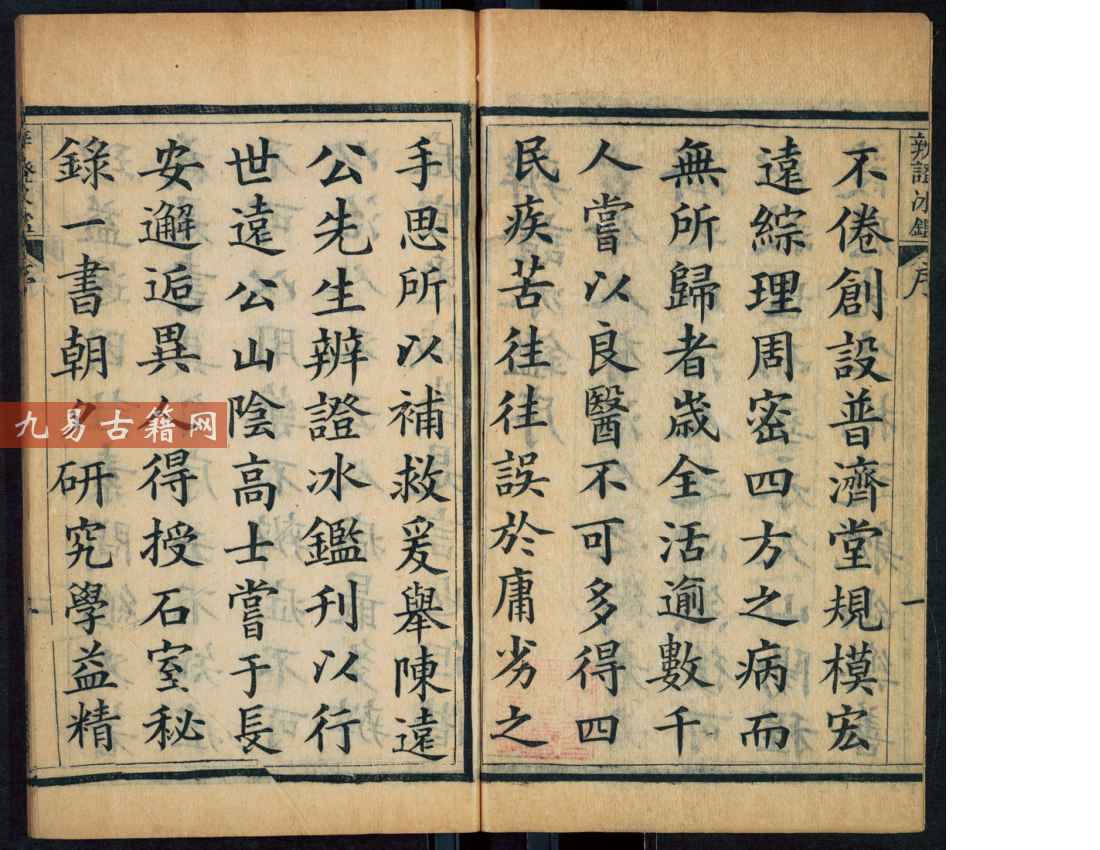 辨證冰鑑
序
一
不倦創設普濟堂規模宏
遠綜理周密四方之病而
無所歸者歲全活逾數千
人嘗以良醫不可多得四
民疾苦往往誤於庸劣之
手思所以補救爰舉陳遠
公先生辨證冰鑑刊以行
世遠公山陰高士嘗于長
安邂逅異人得授石室秘
錄一書朝夕研究學益精
九易古籍网